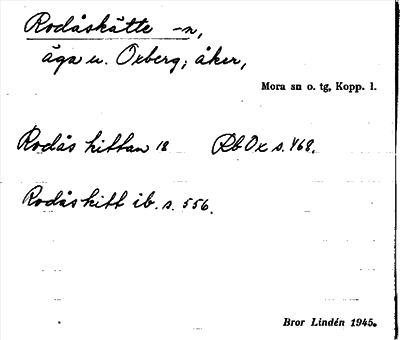 Rodåskätte -n,
äga u. Oxberg; åker,
Mora sn o. tg, Kopp. l.
Rodås kittan 18 RbOx s. 468.
Rodåskitt ib. s. 556.
Bror Lindén 1945.